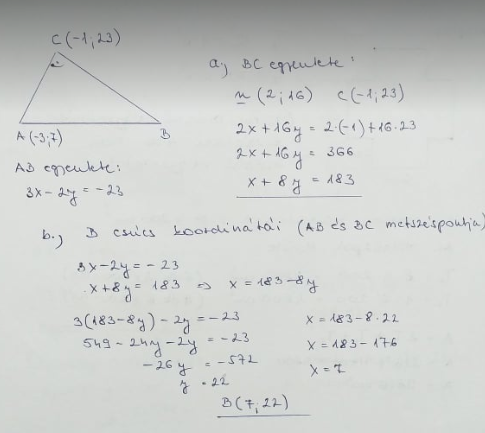 C(-1; 23)
A(-3; 7)
B
AB egyenlete:
3x - 2y = -23
a.; BC egyenlete:
n (2; 16) C(-1; 23)
2x + 16y = 2·(-1) + 16·23
2x + 16y = 366
x + 8y = 183
b.; B csúcs koordinátái (AB és BC metszéspontja)
3x - 2y = -23
x + 8y = 183 ⇒ x = 183 - 8y
3(183 - 8y) - 2y = -23
549 - 24y - 2y = -23
-26y = -572
y = 22
x = 183 - 8·22
x = 183 - 176
x = 7
B(7; 22)